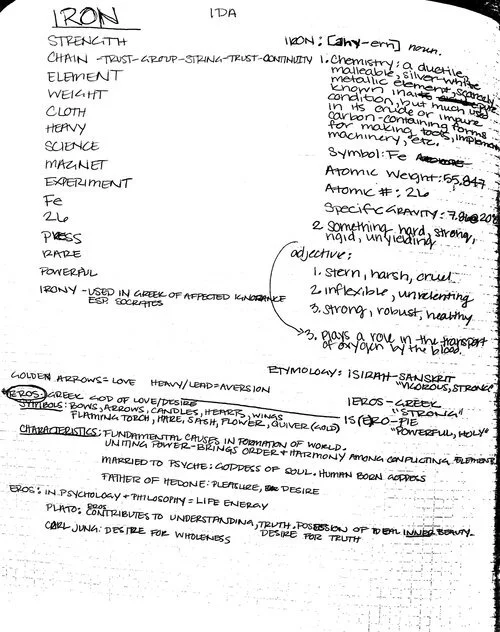 IRON
IDA
STRENGTH
CHAIN - TRUST - GROUP - STRING - TRUST - CONTINUITY
ELEMENT
WEIGHT
CLOTH
HEAVY
SCIENCE
MAGNET
EXPERIMENT
Fe
26
PRESS
RARE
POWERFUL
IRONY - USED IN GREEK OF AFFECTED IGNORANCE
ESP. SOCRATES
IRON: [ahy-ern] noun.
1. Chemistry: a ductile,
malleable, silver-white
metallic element, scarcely
known in a pure
condition, but much used
in its crude or impure
carbon-containing forms
for making tools, implements
machinery, etc.
Symbol: Fe
Atomic Weight: 55.847
Atomic #: 26
Specific GRAVITY: 7.86@20°
2. Something hard, strong,
rigid, unyielding
adjective:
1. stern, harsh, cruel
2. inflexible, unrelenting
3. strong, robust, healthy
3. plays a role in the transport
of oxygen by the blood.
ETYMOLOGY: ISIRAH - SANSKRIT
"VIGOROUS, STRONG"
IEROS - GREEK
"STRONG"
IS(E)RO - PIE
"POWERFUL, HOLY"
GOLDEN ARROWS = LOVE HEAVY/LEAD = AVERSION
*EROS: GREEK GOD OF LOVE/DESIRE
SYMBOLS: BOWS, ARROWS, CANDLES, HEARTS, WINGS
FLAMING TORCH, HARE, SASH, FLOWER, QUIVER (GOLD)
CHARACTERISTICS: FUNDAMENTAL CAUSES IN FORMATION OF WORLD.
UNITING POWER - BRINGS ORDER & HARMONY AMONG CONFLICTING ELEMENT
MARRIED TO PSYCHE: GODDESS OF SOUL. HUMAN BORN GODDESS
FATHER OF HEDONE: PLEASURE, DESIRE
EROS: IN PSYCHOLOGY + PHILOSOPHY = LIFE ENERGY
PLATO: EROS CONTRIBUTES TO UNDERSTANDING, TRUTH. POSSESSION OF IDEAL INNER BEAUTY.
CARL JUNG: DESIRE FOR WHOLENESS DESIRE FOR TRUTH